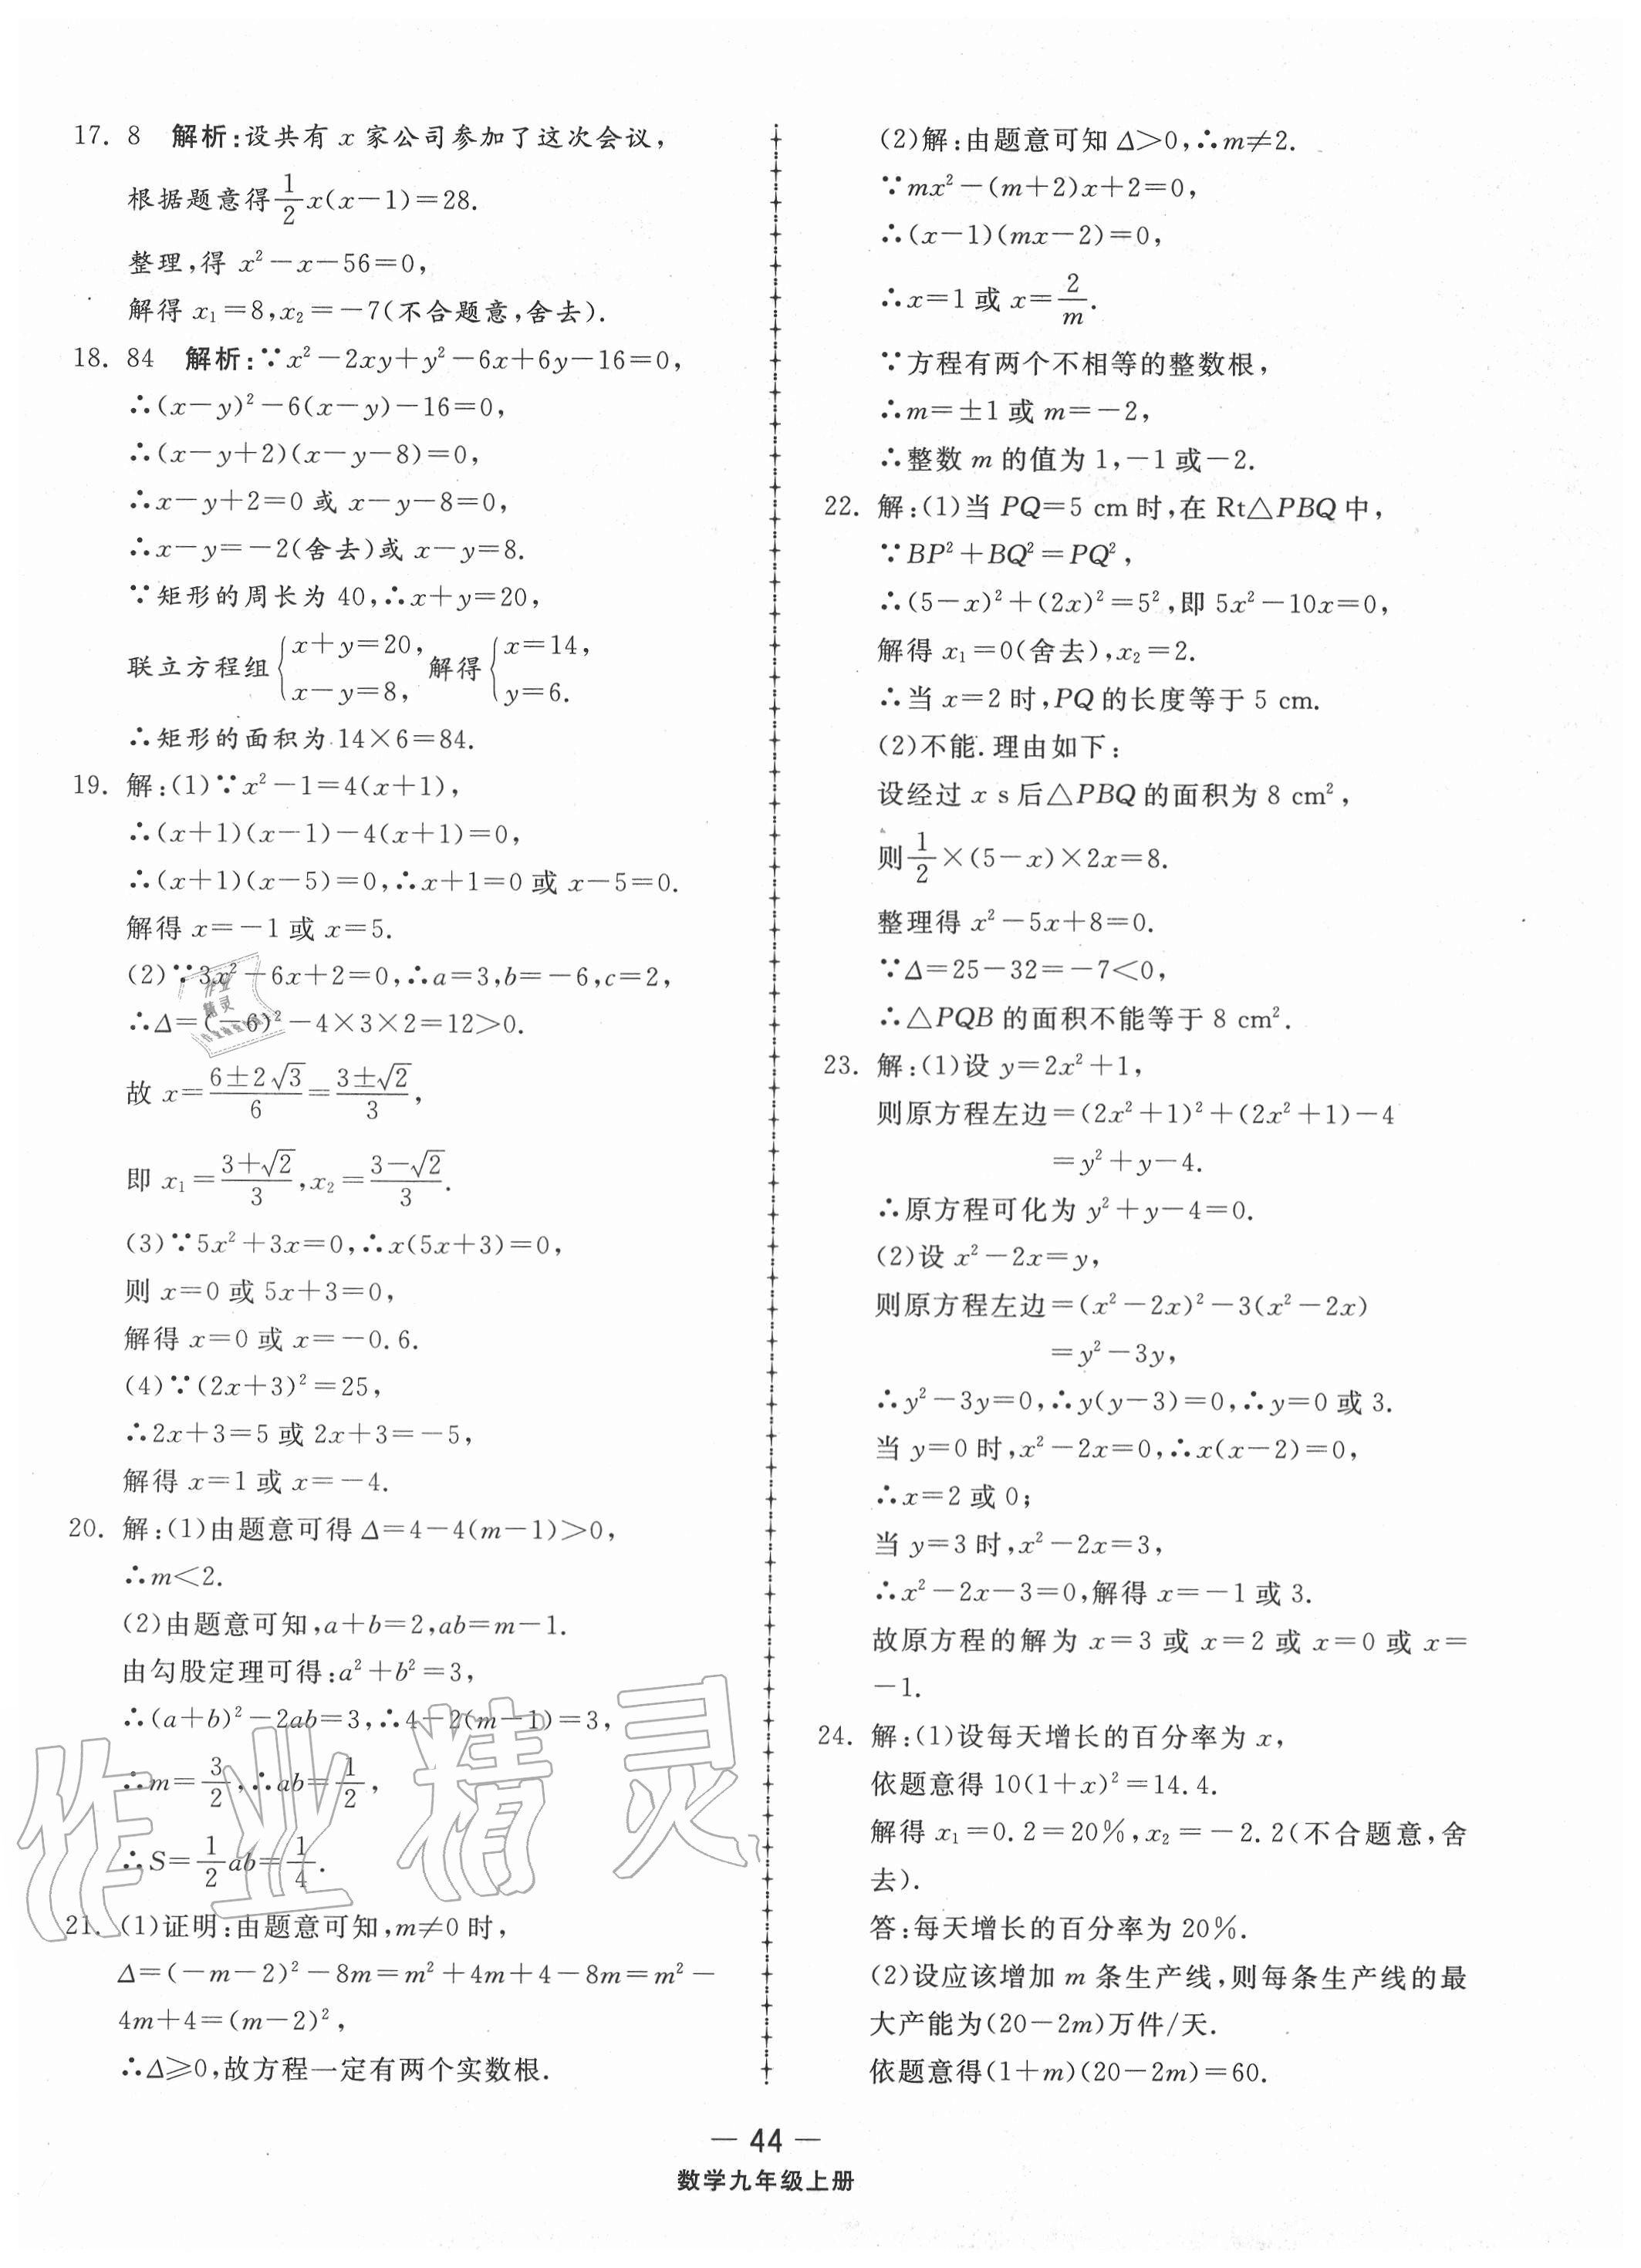 17. 8 解析:设共有 x 家公司参加了这次会议,
根据题意得1/2x(x-1)=28.
整理,得 x²-x-56=0,
解得 x₁=8,x₂=-7(不合题意,舍去).
18. 84 解析:∵x²-2xy+y²-6x+6y-16=0,
∴(x-y)²-6(x-y)-16=0,
∴(x-y+2)(x-y-8)=0,
∴x-y+2=0 或 x-y-8=0,
∴x-y=-2(舍去)或 x-y=8.
∵矩形的周长为 40,∴x+y=20,
联立方程组{x+y=20, x-y=8, 解得{x=14, y=6.
∴矩形的面积为 14×6=84.
19. 解:(1)∵x²-1=4(x+1),
∴(x+1)(x-1)-4(x+1)=0,
∴(x+1)(x-5)=0,∴x+1=0 或 x-5=0.
解得 x=-1 或 x=5.
(2)∵3x²-6x+2=0,∴a=3,b=-6,c=2,
∴Δ=(-6)²-4×3×2=12>0.
故 x=(6±2√3)/6=(3±√2)/3,
即 x₁=(3+√2)/3,x₂=(3-√2)/3.
(3)∵5x²+3x=0,∴x(5x+3)=0,
则 x=0 或 5x+3=0,
解得 x=0 或 x=-0.6.
(4)∵(2x+3)²=25,
∴2x+3=5 或 2x+3=-5,
解得 x=1 或 x=-4.
20. 解:(1)由题意可得 Δ=4-4(m-1)>0,
∴m<2.
(2)由题意可知,a+b=2,ab=m-1.
由勾股定理可得:a²+b²=3,
∴(a+b)²-2ab=3,∴4-2(m-1)=3,
∴m=3/2,∴ab=1/2,
∴S=1/2ab=1/4.
21. (1)证明:由题意可知,m≠0 时,
Δ=(-m-2)²-8m=m²+4m+4-8m=m²-
4m+4=(m-2)²,
∴Δ≥0,故方程一定有两个实数根.
(2)解:由题意可知 Δ>0,∴m≠2.
∵mx²-(m+2)x+2=0,
∴(x-1)(mx-2)=0,
∴x=1 或 x=2/m.
∵方程有两个不相等的整数根,
∴m=±1 或 m=-2,
∴整数 m 的值为 1,-1 或-2.
22. 解:(1)当 PQ=5 cm 时,在 Rt△PBQ 中,
∵BP²+BQ²=PQ²,
∴(5-x)²+(2x)²=5²,即 5x²-10x=0,
解得 x₁=0(舍去),x₂=2.
∴当 x=2 时,PQ 的长度等于 5 cm.
(2)不能.理由如下:
设经过 x s 后△PBQ 的面积为 8 cm²,
则1/2×(5-x)×2x=8.
整理得 x²-5x+8=0.
∵Δ=25-32=-7<0,
∴△PQB 的面积不能等于 8 cm².
23. 解:(1)设 y=2x²+1,
则原方程左边=(2x²+1)²+(2x²+1)-4
=y²+y-4.
∴原方程可化为 y²+y-4=0.
(2)设 x²-2x=y,
则原方程左边=(x²-2x)²-3(x²-2x)
=y²-3y,
∴y²-3y=0,∴y(y-3)=0,∴y=0 或 3.
当 y=0 时,x²-2x=0,∴x(x-2)=0,
∴x=2 或 0;
当 y=3 时,x²-2x=3,
∴x²-2x-3=0,解得 x=-1 或 3.
故原方程的解为 x=3 或 x=2 或 x=0 或 x=
-1.
24. 解:(1)设每天增长的百分率为 x,
依题意得 10(1+x)²=14.4.
解得 x₁=0.2=20%,x₂=-2.2(不合题意,舍
去).
答:每天增长的百分率为 20%.
(2)设应该增加 m 条生产线,则每条生产线的最
大产能为(20-2m)万件/天.
依题意得(1+m)(20-2m)=60.
— 44 —
数学九年级上册
作业精灵
作业
精灵